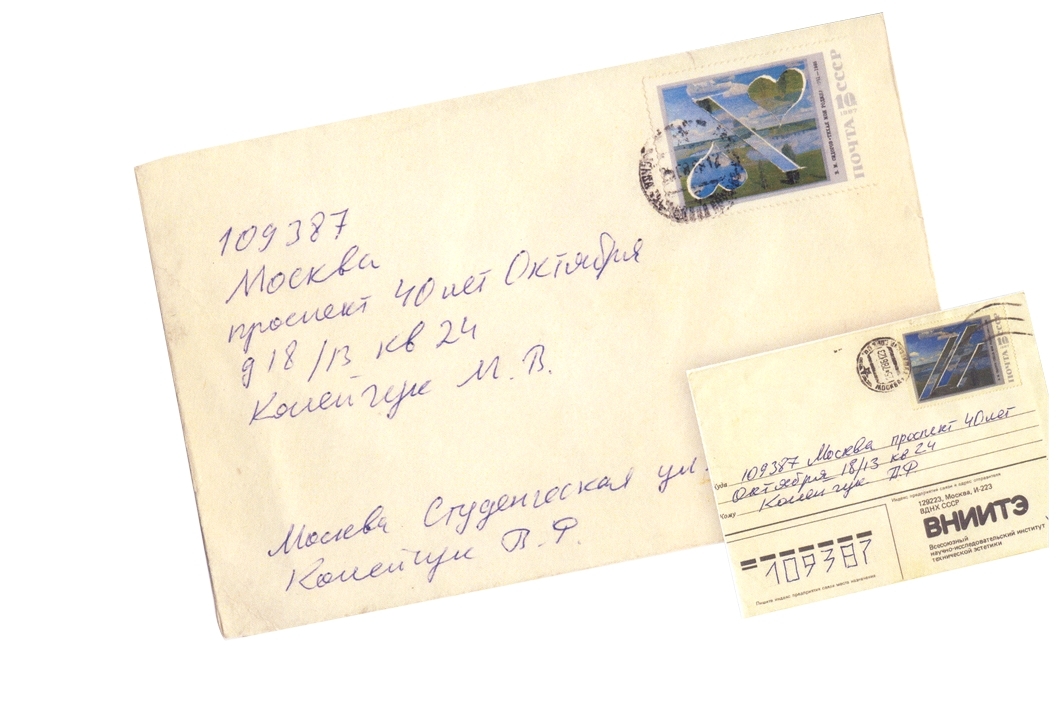 109387
Москва
проспект 40 лет Октября
д 18/13 кв 24
Колейчук М. В.
Москва Студенческая ул.
Колейчук В. Ф.
ПОЧТА 10 СССР
1987
ПОЧТА 10 СССР
Куда 109387 Москва проспект 40 лет
Октября 18/13 кв 24
Кому Колейчук Д Ф
Индекс предприятия связи и адрес отправителя
129223, Москва, И-223
ВДНХ СССР
ВНИИТЭ
Всесоюзный
научно-исследовательский институт
технической эстетики
109387
Пишите индекс предприятия связи места назначения